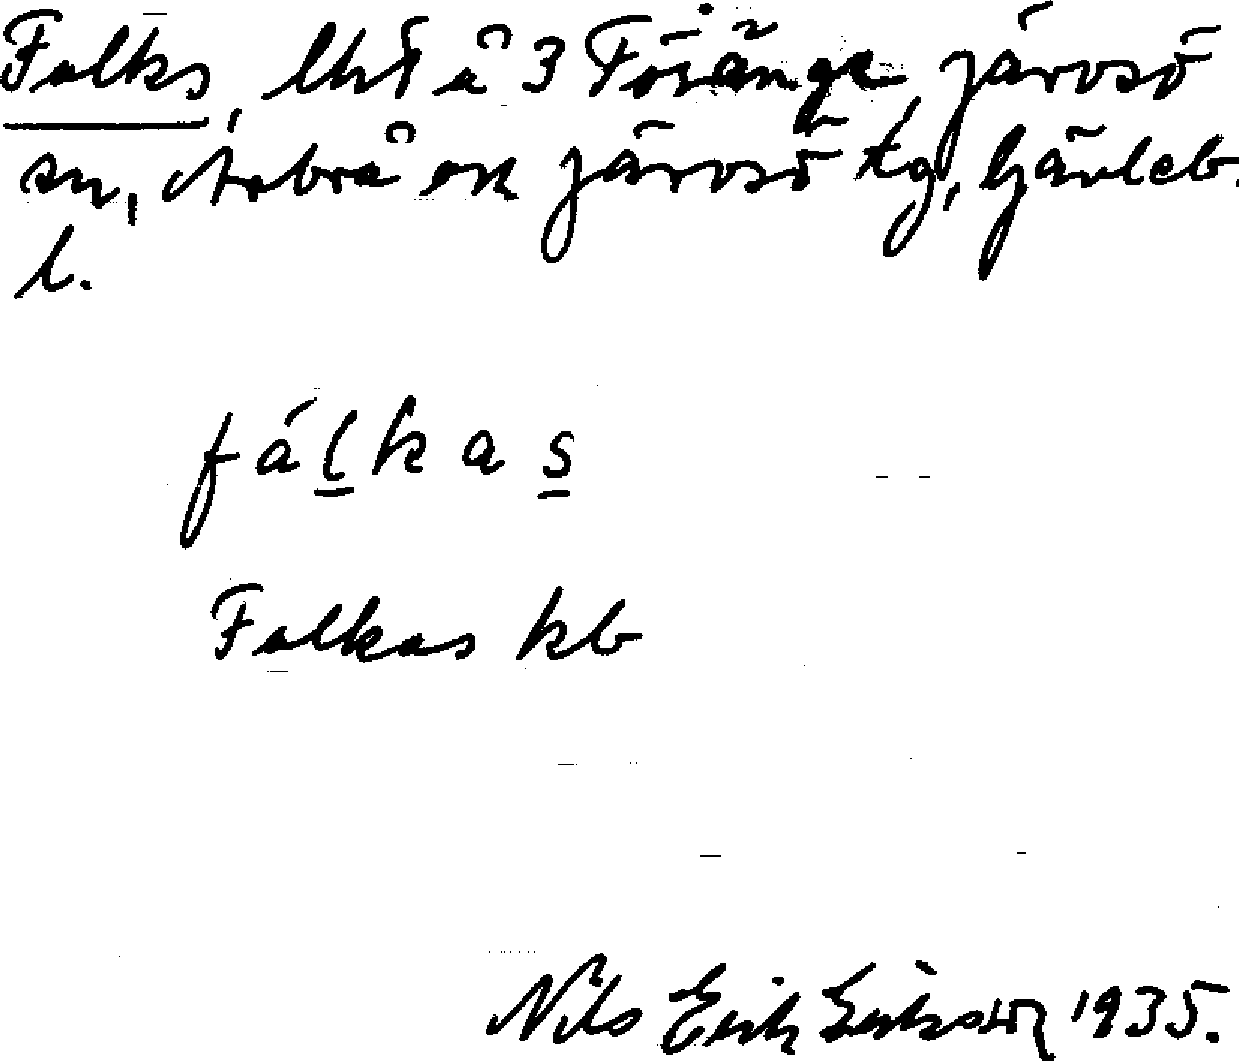 Falks, lht å 3 Föränge, Järvsö
sn, Arbrå ock Järvsö tg, Gävleb.
l.
fálkas
Falkas kb
Nils Erik Eriksson 1935.